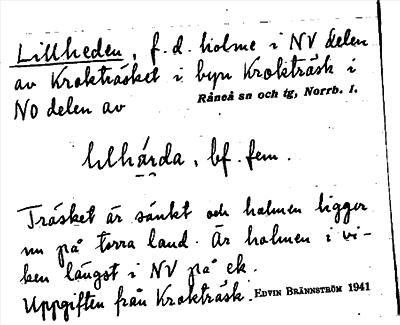 Lillheden, f.d. holme i NV delen
av Krokträsket i byn Krokträsk i
NO delen av Råneå sn och tg, Norrb. l.
bf. fem.
Träsket är sänkt och holmen ligger
nu på torra land. Är holmen i vi-
ken längst i NV på ek.
Uppgiften från Krokträsk. EDVIN BRÄNNSTRÖM 1941